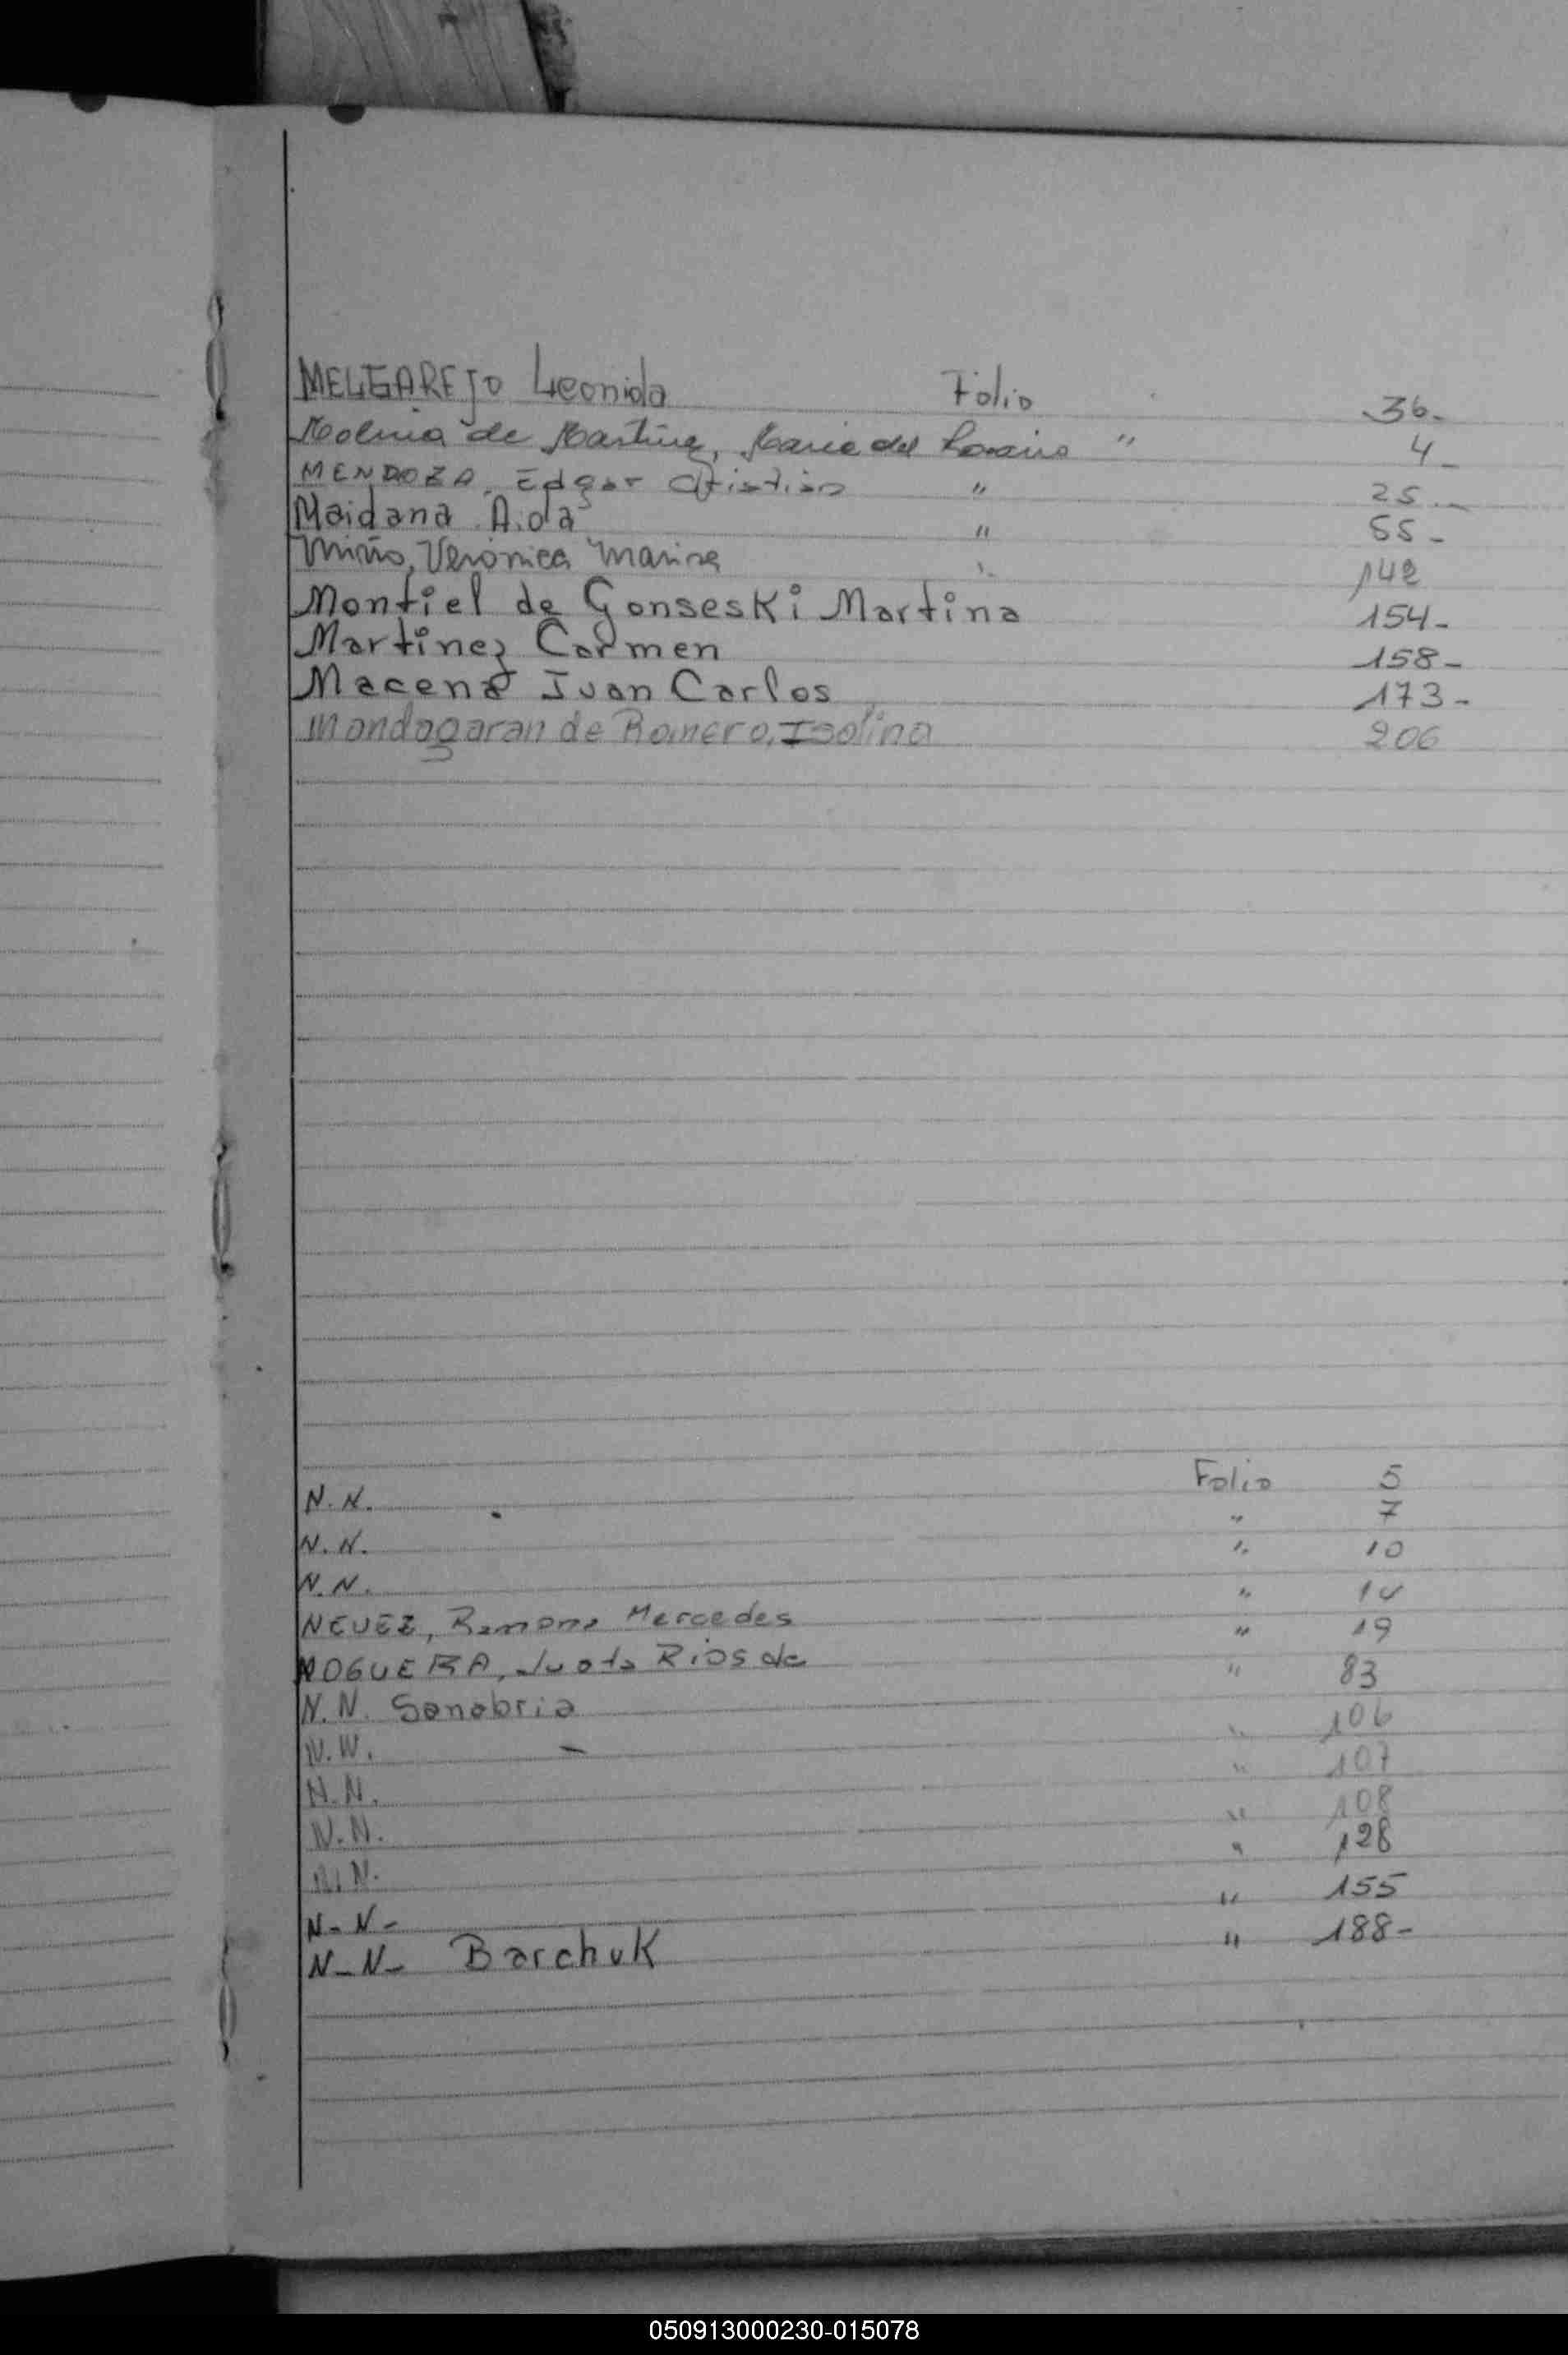 MELGAREJO Leonida Folio 36-
Molina de Martinez, Maria del Rosario " 4-
MENDOZA, Edgar Cristian " 25-
Maidana Aida " 55-
Miño, Verónica Marina " 142
Montiel de Gonseski Martina 154-
Martinez Carmen 158-
Macena Juan Carlos 173-
Mandagaran de Romero, Isolina 206
N.N. Folio 5
N.N. " 7
N.N. " 10
NEVEZ, Ramona Mercedes " 14
NOGUERA, Rios de " 19
N.N. Sanabria " 83
N.N. - " 106
N.N. " 107
N.N. " 108
N.N. " 128
N-N- " 155
N-N- Barchuk " 188-
050913000230-015078